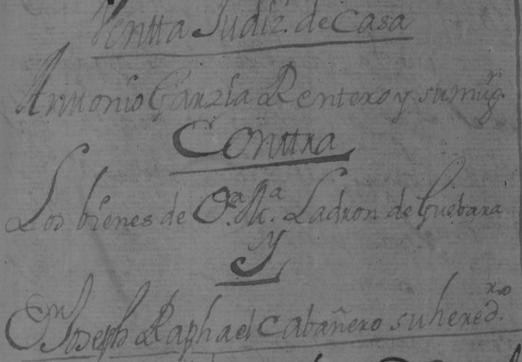 Ventta Judiz.ᵈᵉ casa
Anttonio Garzia Rentero y su mugʳ
Conttra
Los bienes de Dᵃ. Mᵃ. Ladron de Guebara
Y
Dⁿ Joseph Raphael Cabañero su heredʳᵒ.